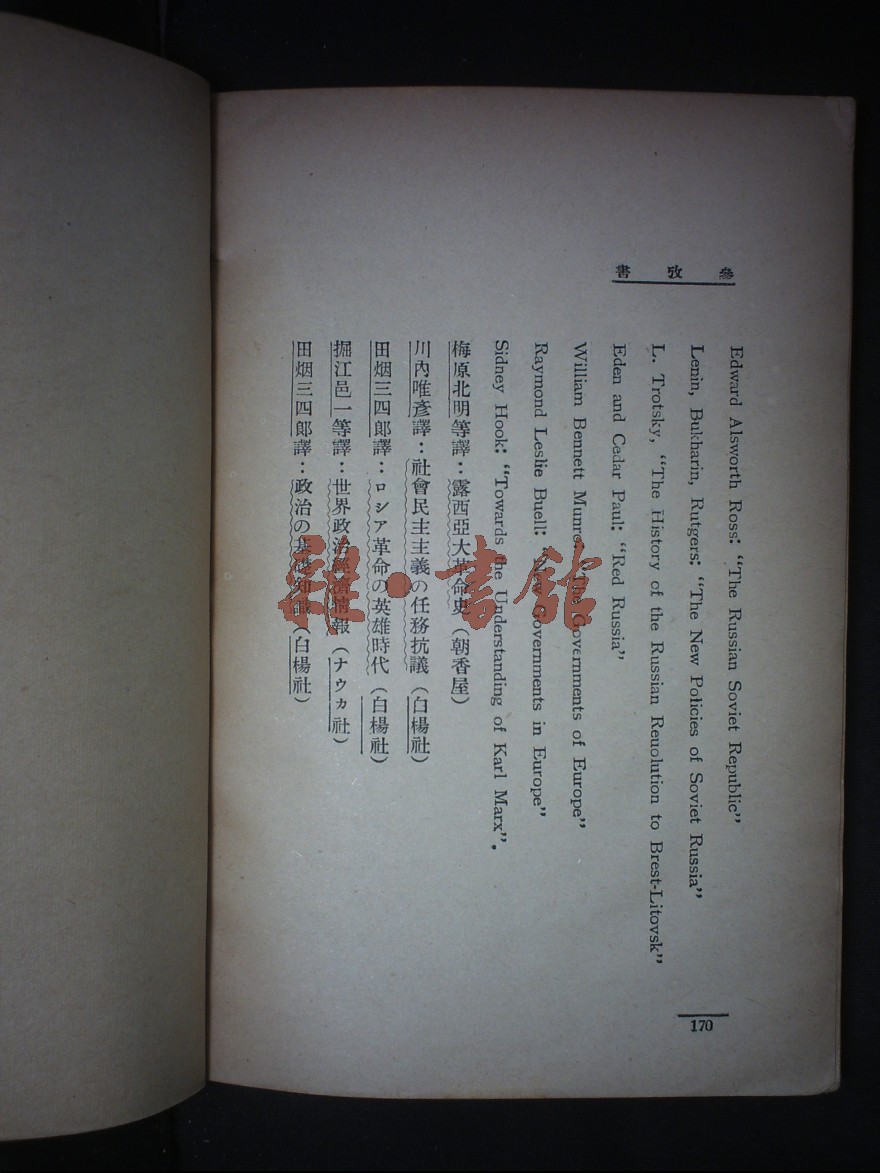 參攷書
Edward Alsworth Ross: “The Russian Soviet Republic”
Lenin, Bukharin, Rutgers: “The New Policies of Soviet Russia”
L. Trotsky, “The History of the Russian Reuolution to Brest-Litovsk”
Eden and Cedar Paul: “Red Russia”
William Bennett Munro: “The Governments of Europe”
Raymond Leslie Buell: “New Governments in Europe”
Sidney Hook: “Towards the Understanding of Karl Marx”.
梅原北明等譯：露西亞大革命史（朝香屋）
川內唯彥譯：社會民主主義の任務抗議（白楊社）
田烟三四郞譯：ロシア革命の英雄時代（白楊社）
掘江邑一等譯：世界政治經濟情報（ナウカ社）
田烟三四郞譯：政治の基礎知識（白楊社）
170